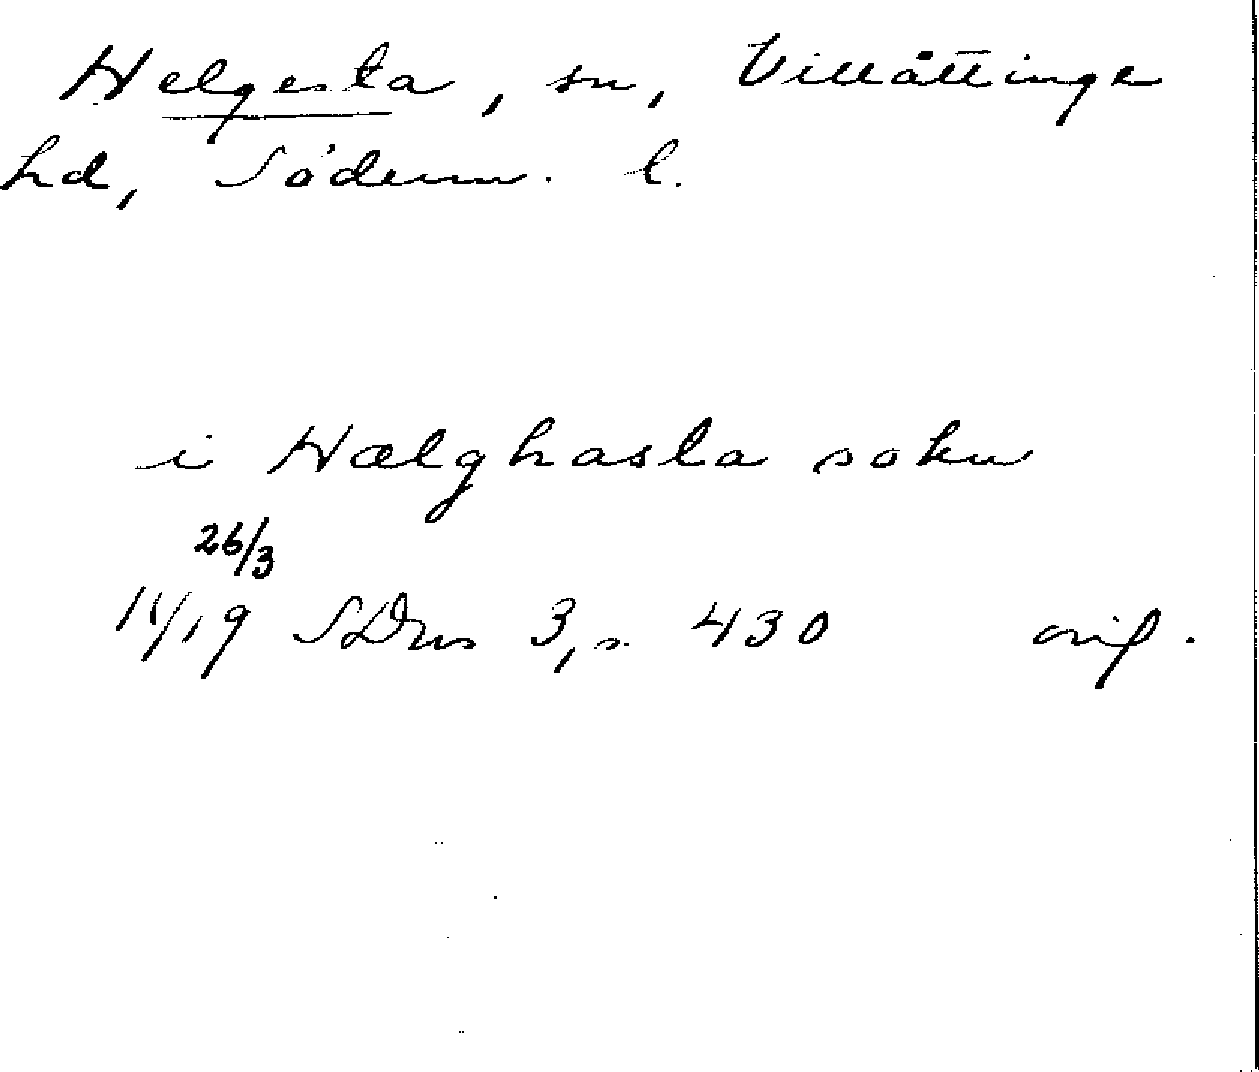 Helgesta, sn, Villåttinge
hd, Söderm. l.
i Hælghasta sokn
26/3
1419 SDns 3, s. 430 orig.